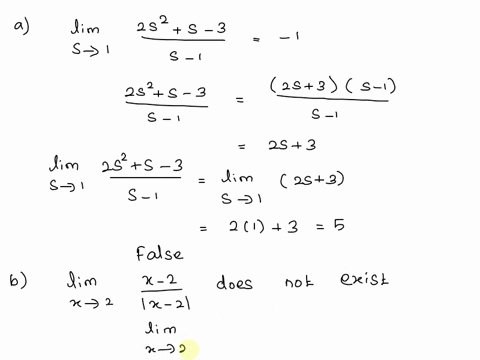 a) lim s→1 (2s² + s − 3)/(s − 1) = −1
(2s² + s − 3)/(s − 1) = ((2s+3)(s−1))/(s−1)
= 2s+3
lim s→1 (2s² + s − 3)/(s − 1) = lim s→1 (2s+3)
= 2(1) + 3 = 5
False
b) lim x→2 (x−2)/|x−2| does not exist
lim x→2